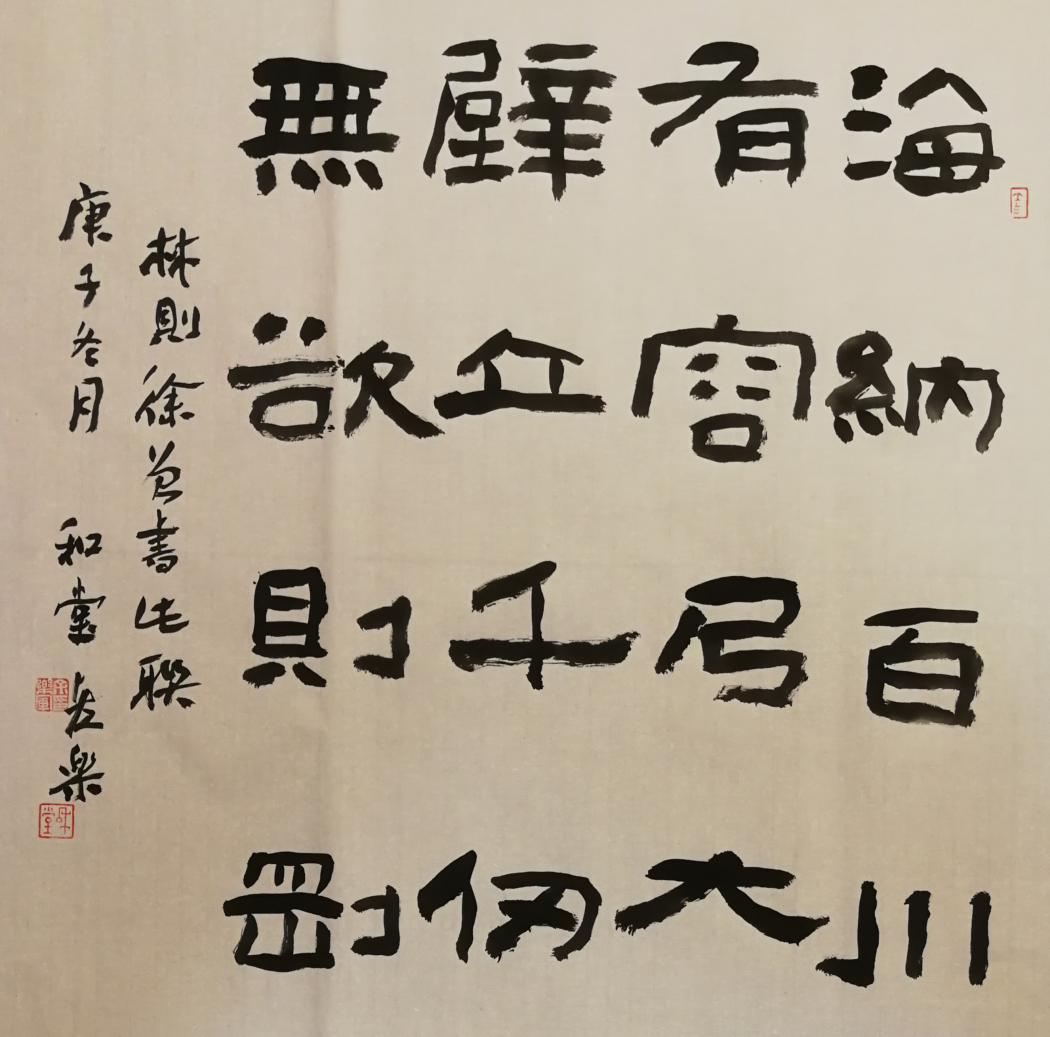 海納百川
有容乃大
壁立千仞
無欲則剛
林則徐曾書此聯
庚子冬月 和堂 樂
和堂